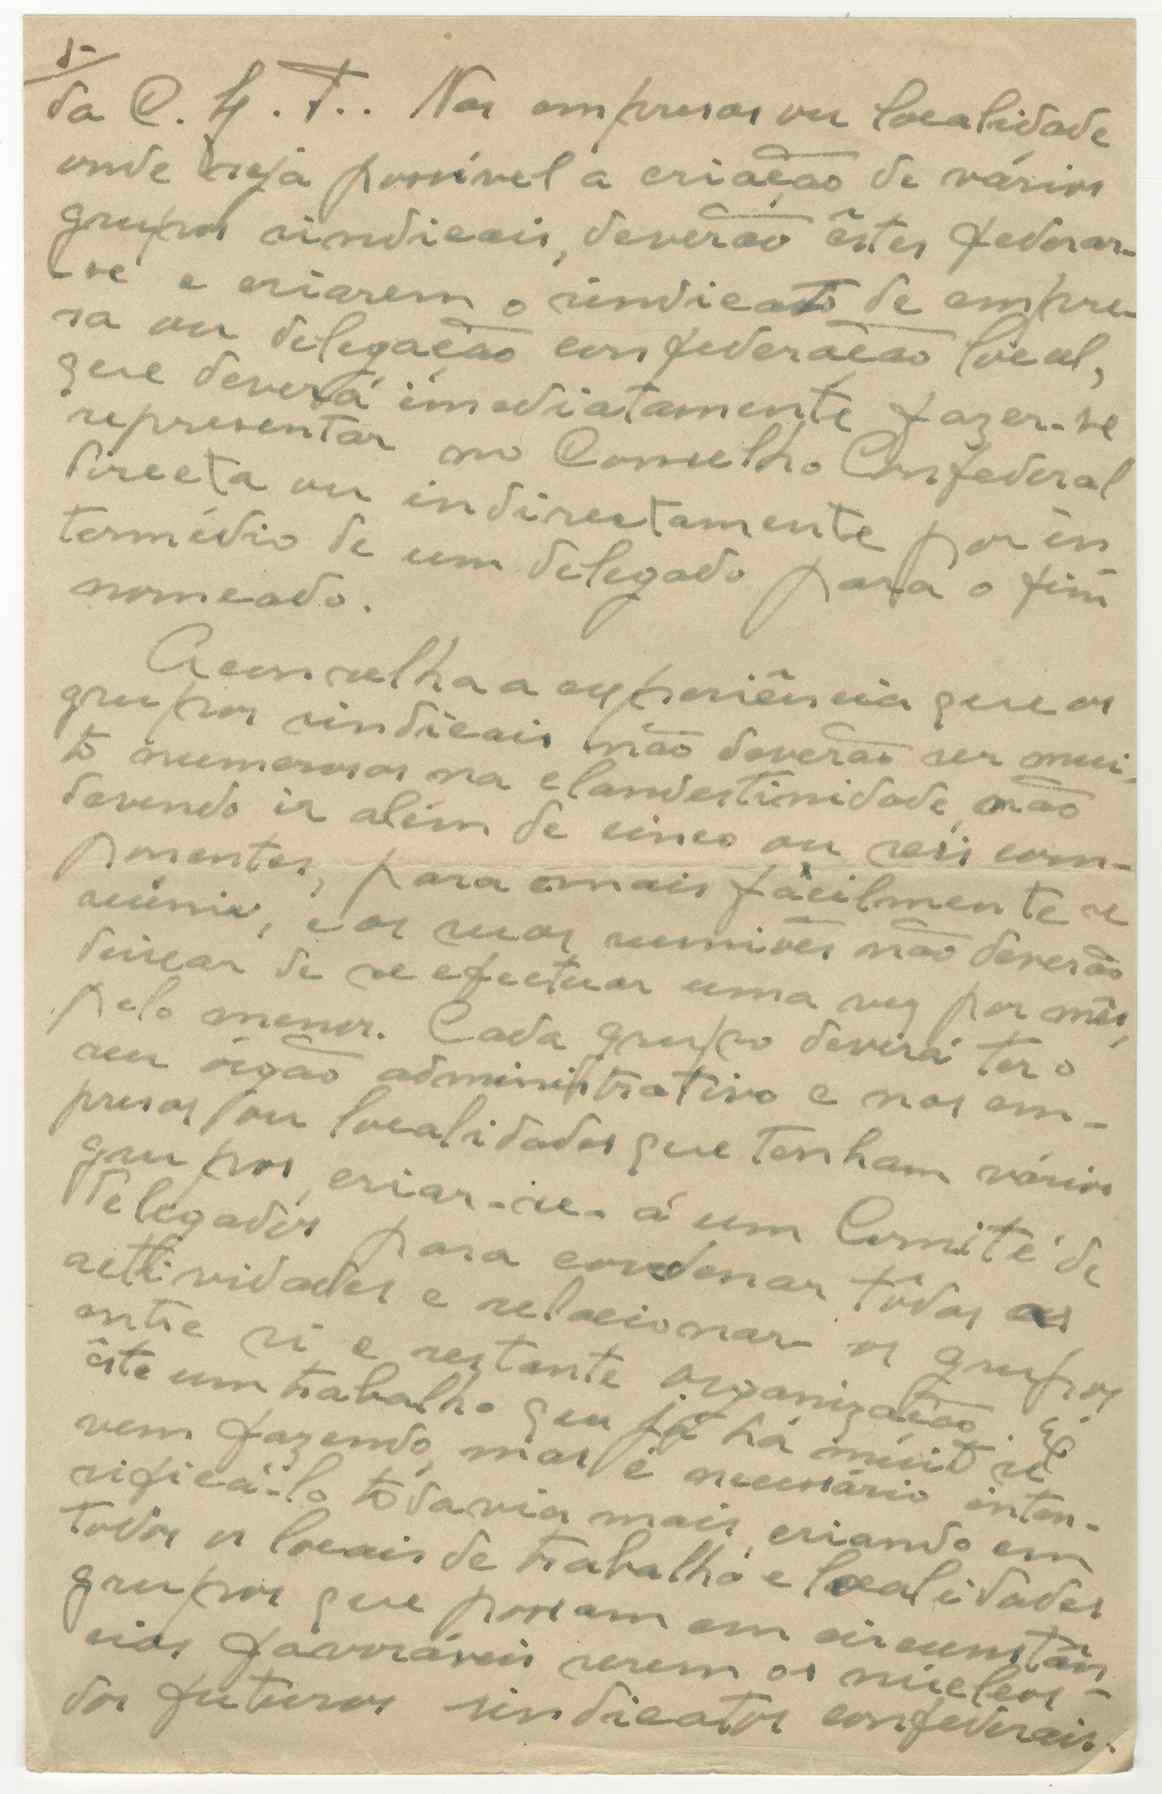 5-
da C. G. T.. Nas empresas ou localidade
onde seja possível a criação de vários
grupos sindicais, deverão êstes federar-
-se e criarem o sindicato de empre-
sa ou delegação confederação local,
que deverá imediatamente fazer-se
representar no Conselho Confederal
directa ou indirectamente por in
termédio de um delegado para o fim
nomeado.
Aconselha a experiência que os
grupos sindicais não deverão ser mui-
to numerosos na clandestinidade, não
devendo ir além de cinco ou seis com-
ponentes, para mais fàcilmente se
reünir, e as suas reuniões não deverão
deixar de se efectuar uma vez por mês,
pelo menos. Cada grupo deverá ter o
seu órgão administrativo e nas em-
presas ou localidades que tenham vários
grupos, criar-se-á um Comité de
Delegados para cordenar tôdas as
actividades e relacionar os grupos
entre si e restante organização. É
êste um trabalho que já há muito se
vem fazendo, mas é necessário inten-
sificá-lo tôdavia mais, criando em
todos os locais de trabalho e localidades
grupos que possam em circunstân-
cias favoráveis serem os núcleos
dos futuros sindicatos confederais.